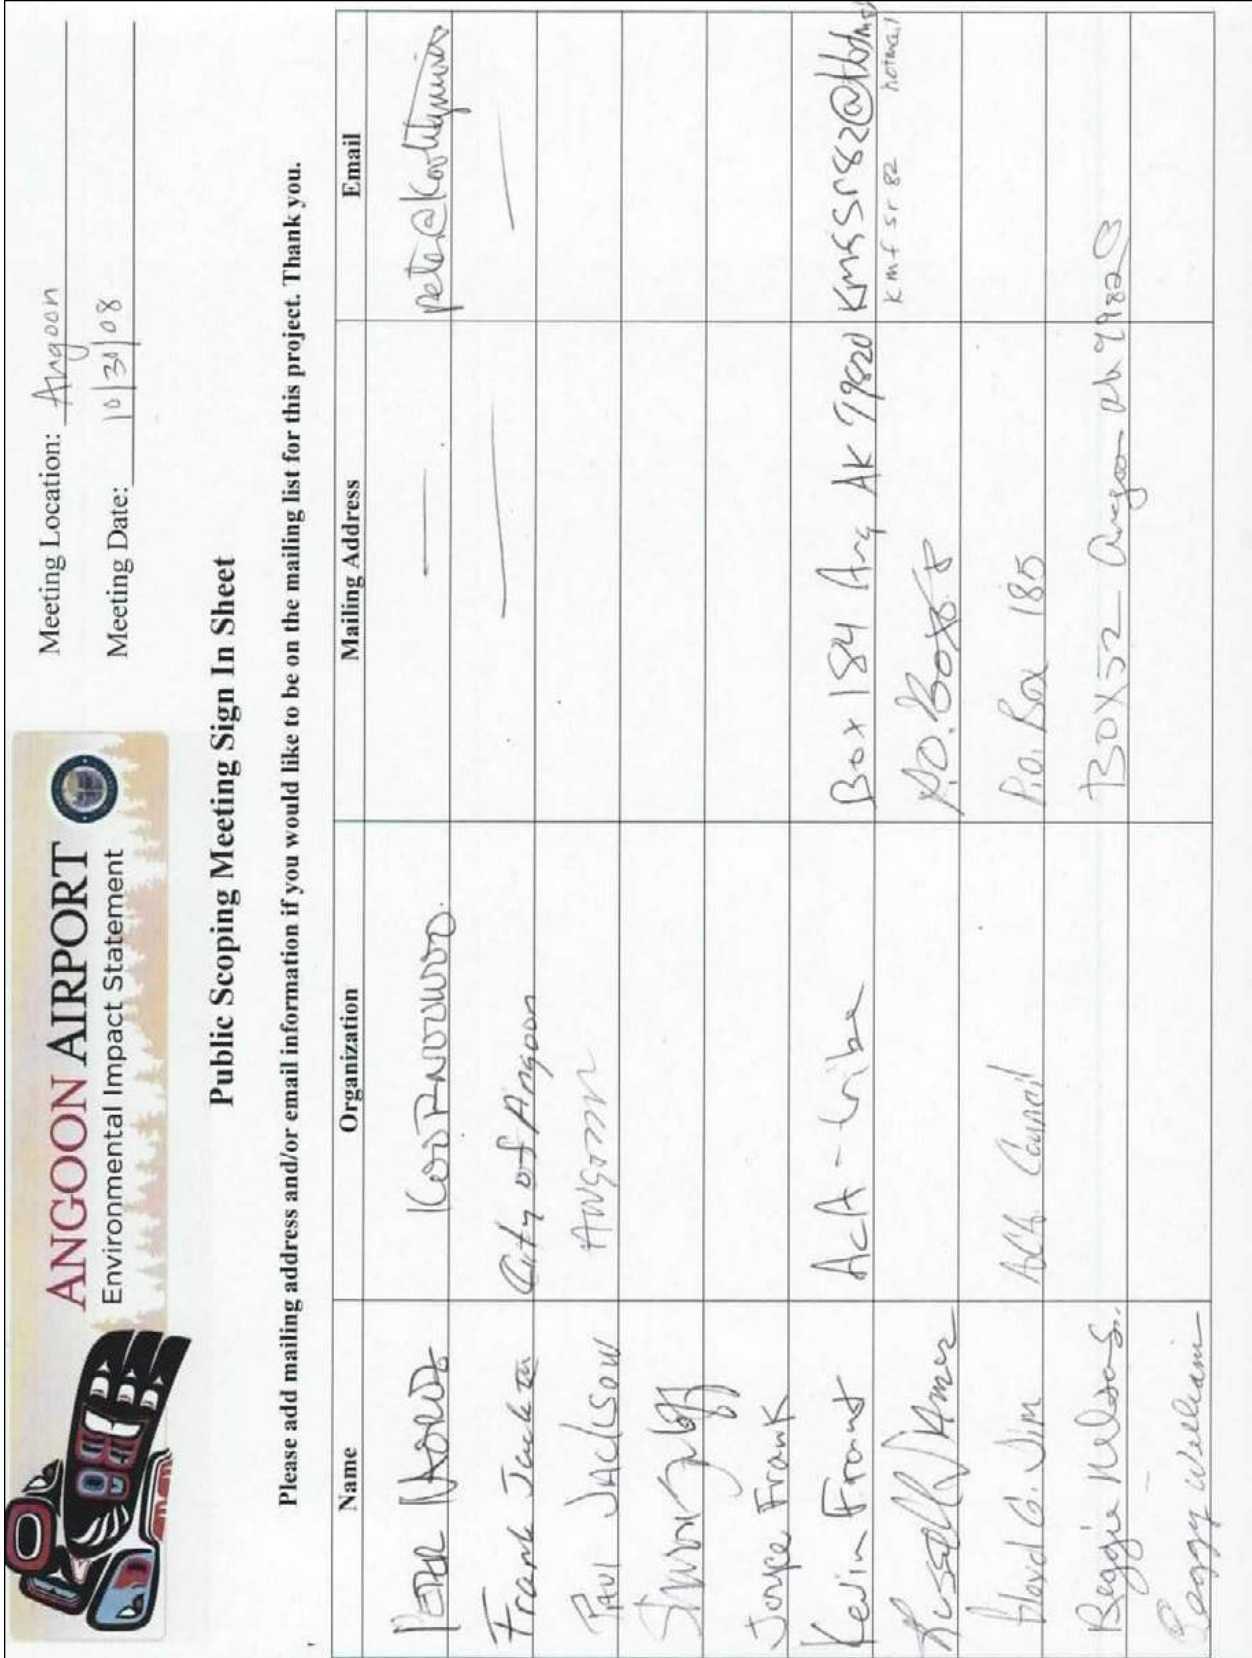 ANGOON AIRPORT
Environmental Impact Statement
Meeting Location: Angoon
Meeting Date: 10/30/08
Public Scoping Meeting Sign In Sheet
Please add mailing address and/or email information if you would like to be on the mailing list for this project. Thank you.
Name Organization Mailing Address Email
Frank Jack III City of Angoon
Paul Jackson Angoon
Joyce Frank
Kevin Frank ACA-tribe Box 184 Ang AK 99820
kmfsr82 hotmail
P.O. Box 8
Floyd G. Jim ACA Council P.O. Box 185
Reggie Nelson Sr. Box 52 Angoon 99820
Peggy Williams